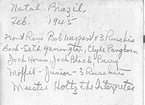 Natal, Brazil,
Feb. 1945
Front Row: Bob & 3 Russkis
Back - Seth Yarrington, Clyde Pangborn
Jack Horner, Jack Black, Barry
Moffet - Junior - 3 Russkis
Master Holtz the Interpreter